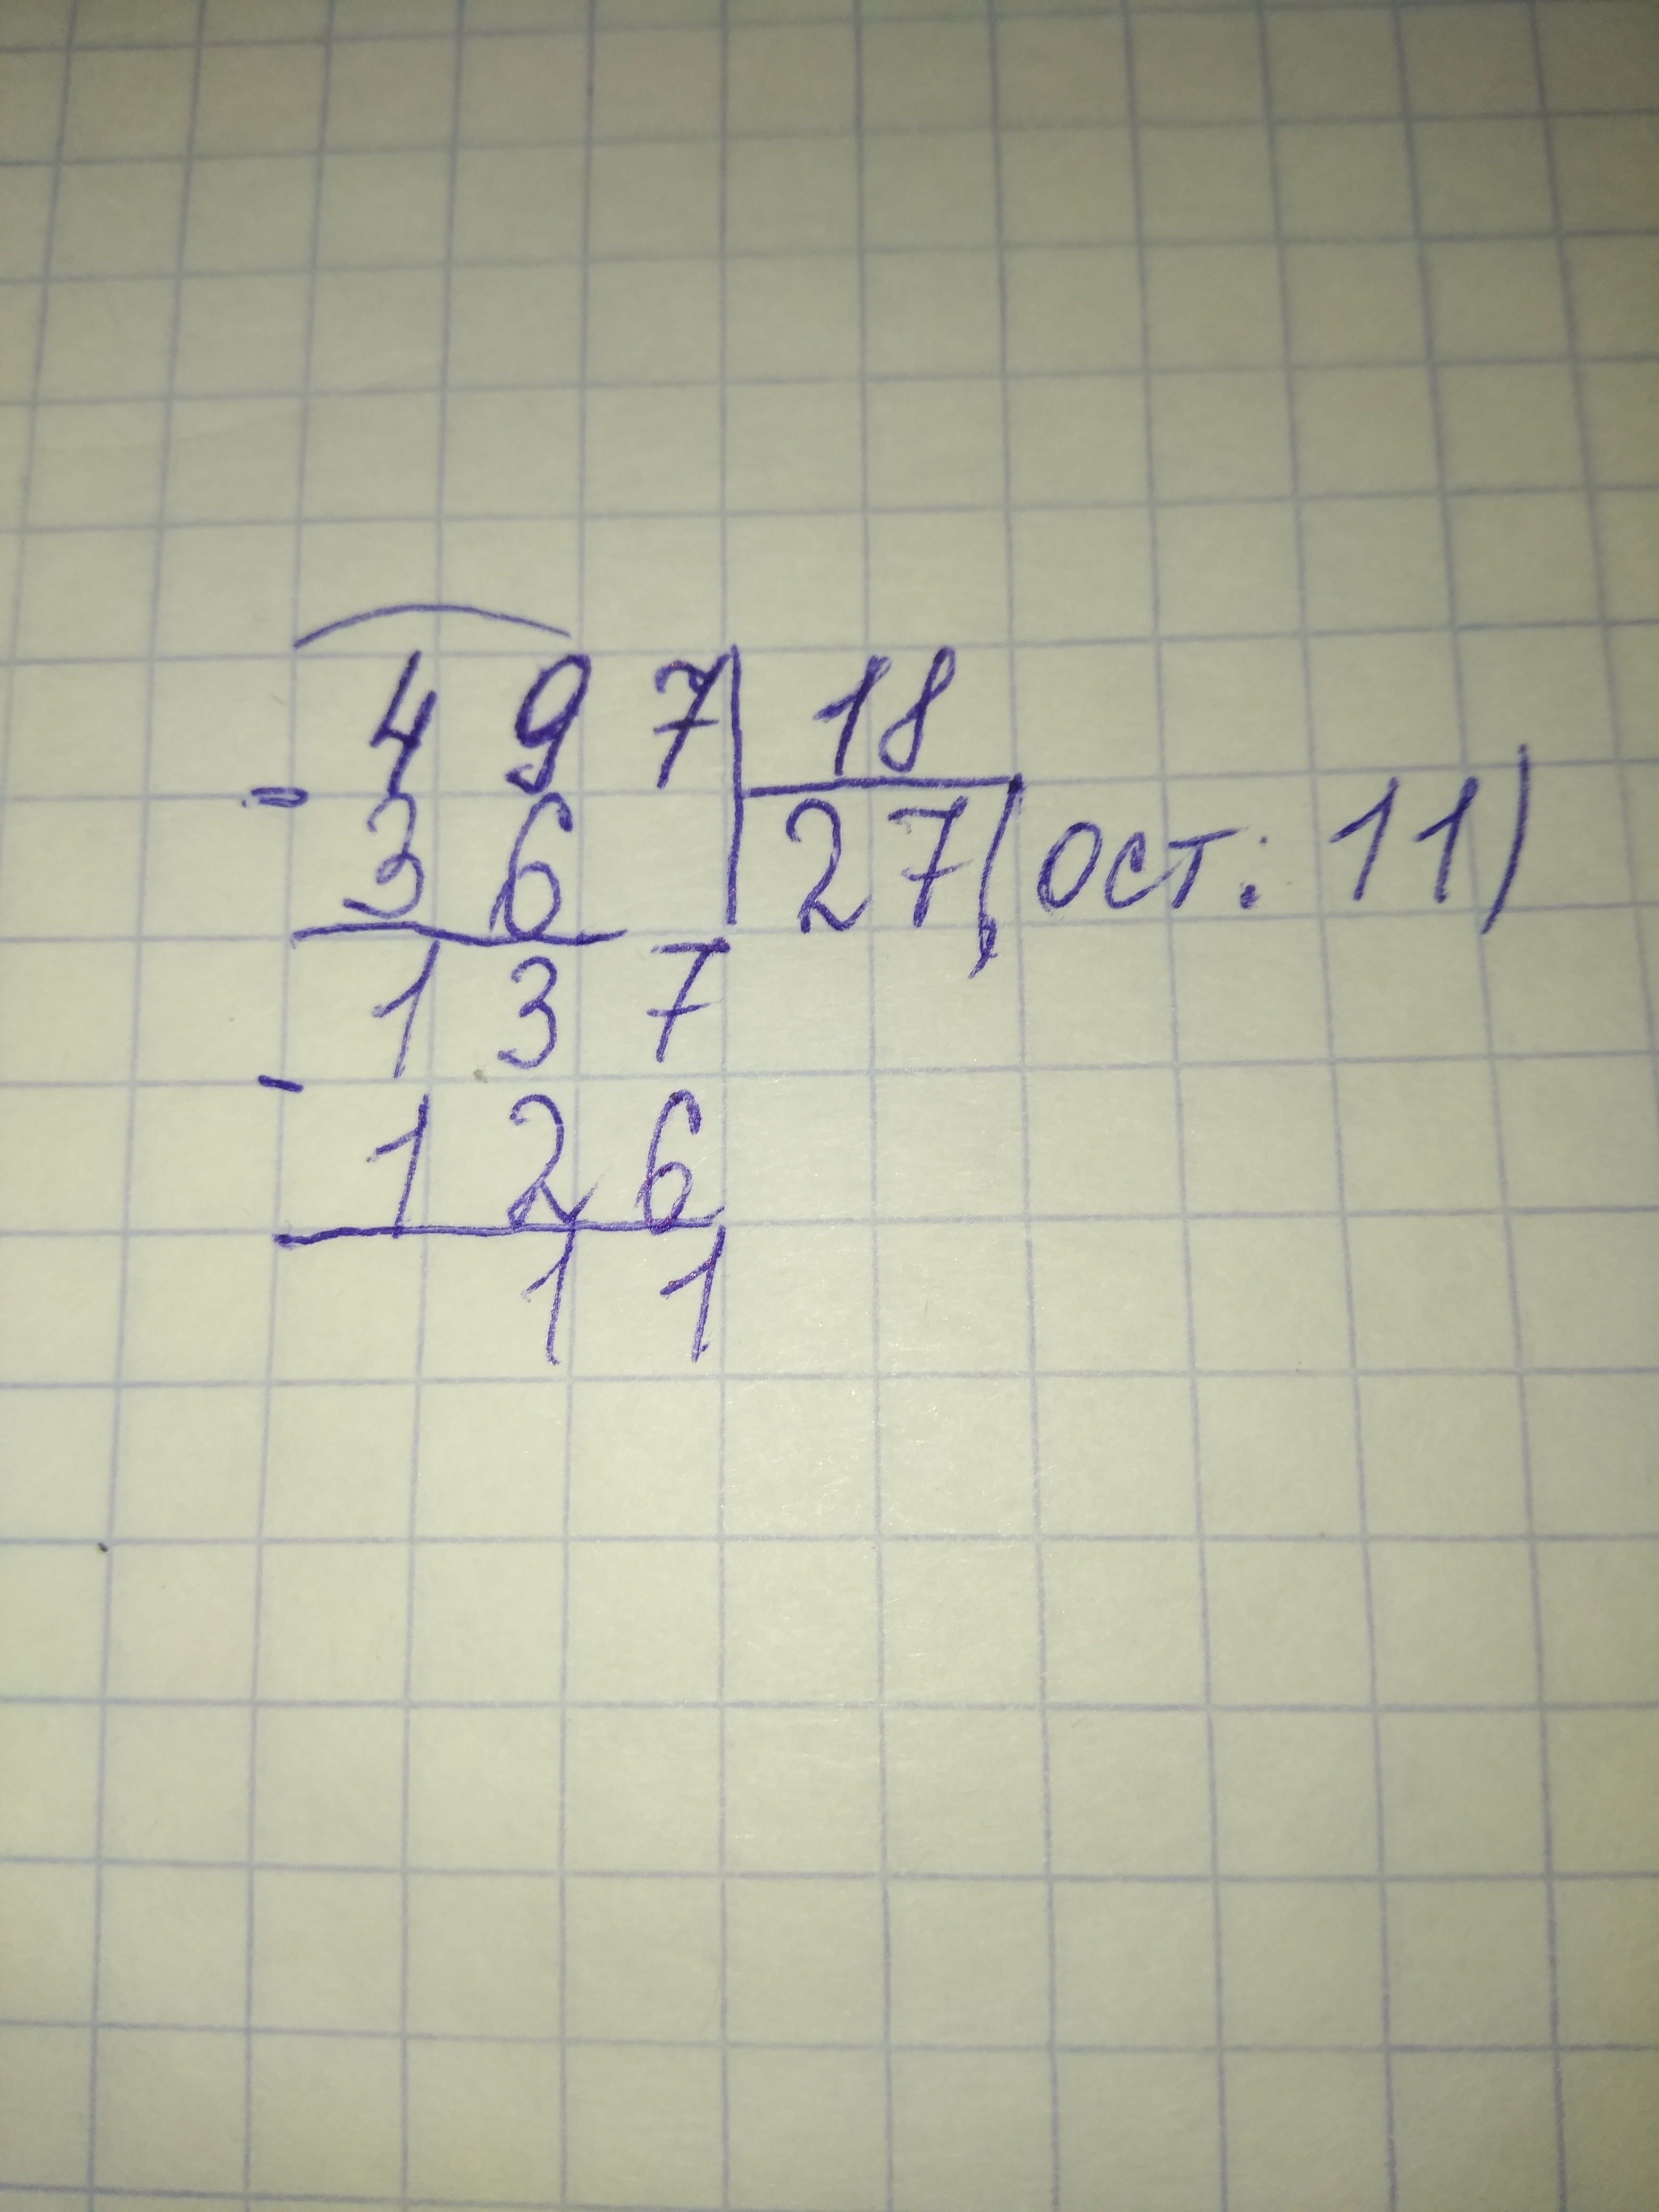 497 18
- 36 27 (ост: 11)
137
- 126
11